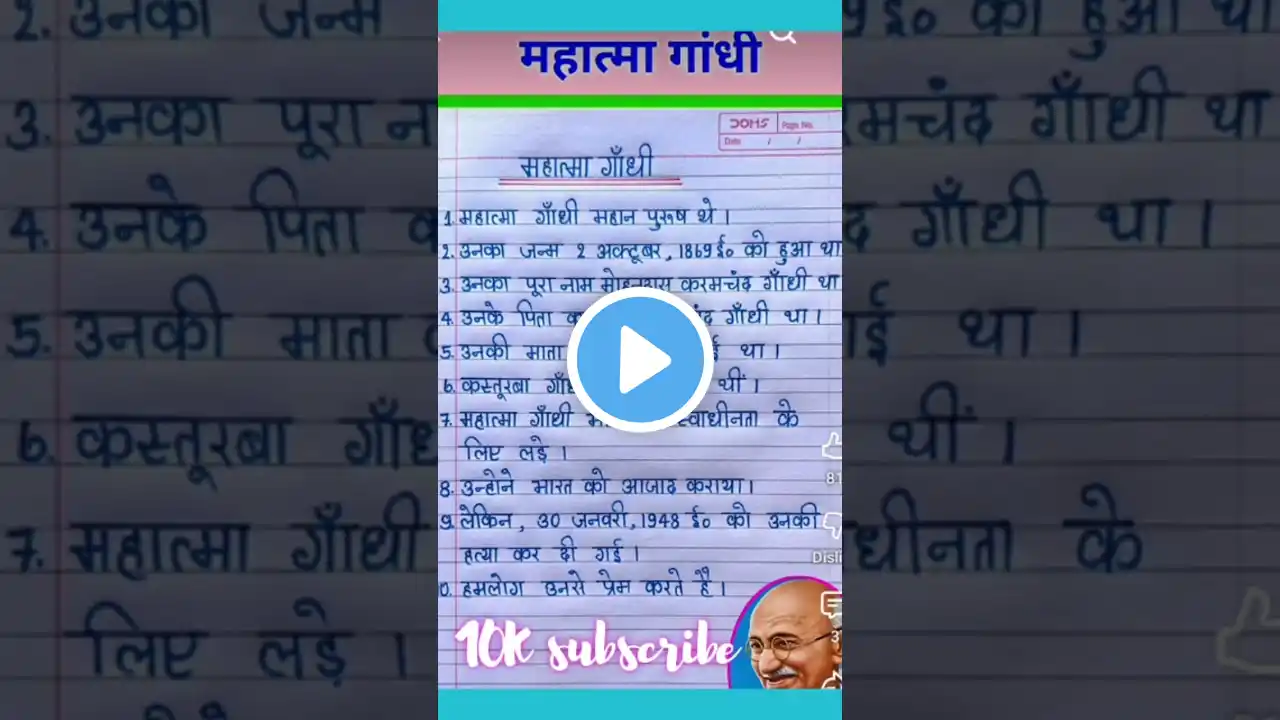 महात्मा गांधी
DOMS Page No.
Date / /
महात्मा गाँधी
1. महात्मा गाँधी महान पुरुष थे ।
2. उनका जन्म 2 अक्टूबर, 1869 ई० को हुआ था
3. उनका पूरा नाम मोहनदास करमचंद गाँधी था
4. उनके पिता गाँधी था ।
5. उनकी माता था ।
6. कस्तूरबा थीं ।
7. महात्मा गाँधी स्वाधीनता के
लिए लड़े ।
8. उन्होने भारत को आजाद कराया।
9. लेकिन, 30 जनवरी, 1948 ई० को उनकी
हत्या कर दी गई ।
0. हमलोग उनसे प्रेम करते हैं ।
10K subscribe
2. उनका जन्म 9 ई० को हुआ था
3. उनका पूरा गाँधी था
4. उनके पिता गाँधी था ।
5. उनकी माता था ।
6. कस्तूरबा थीं ।
7. महात्मा गाँधी के
लिए लड़े ।